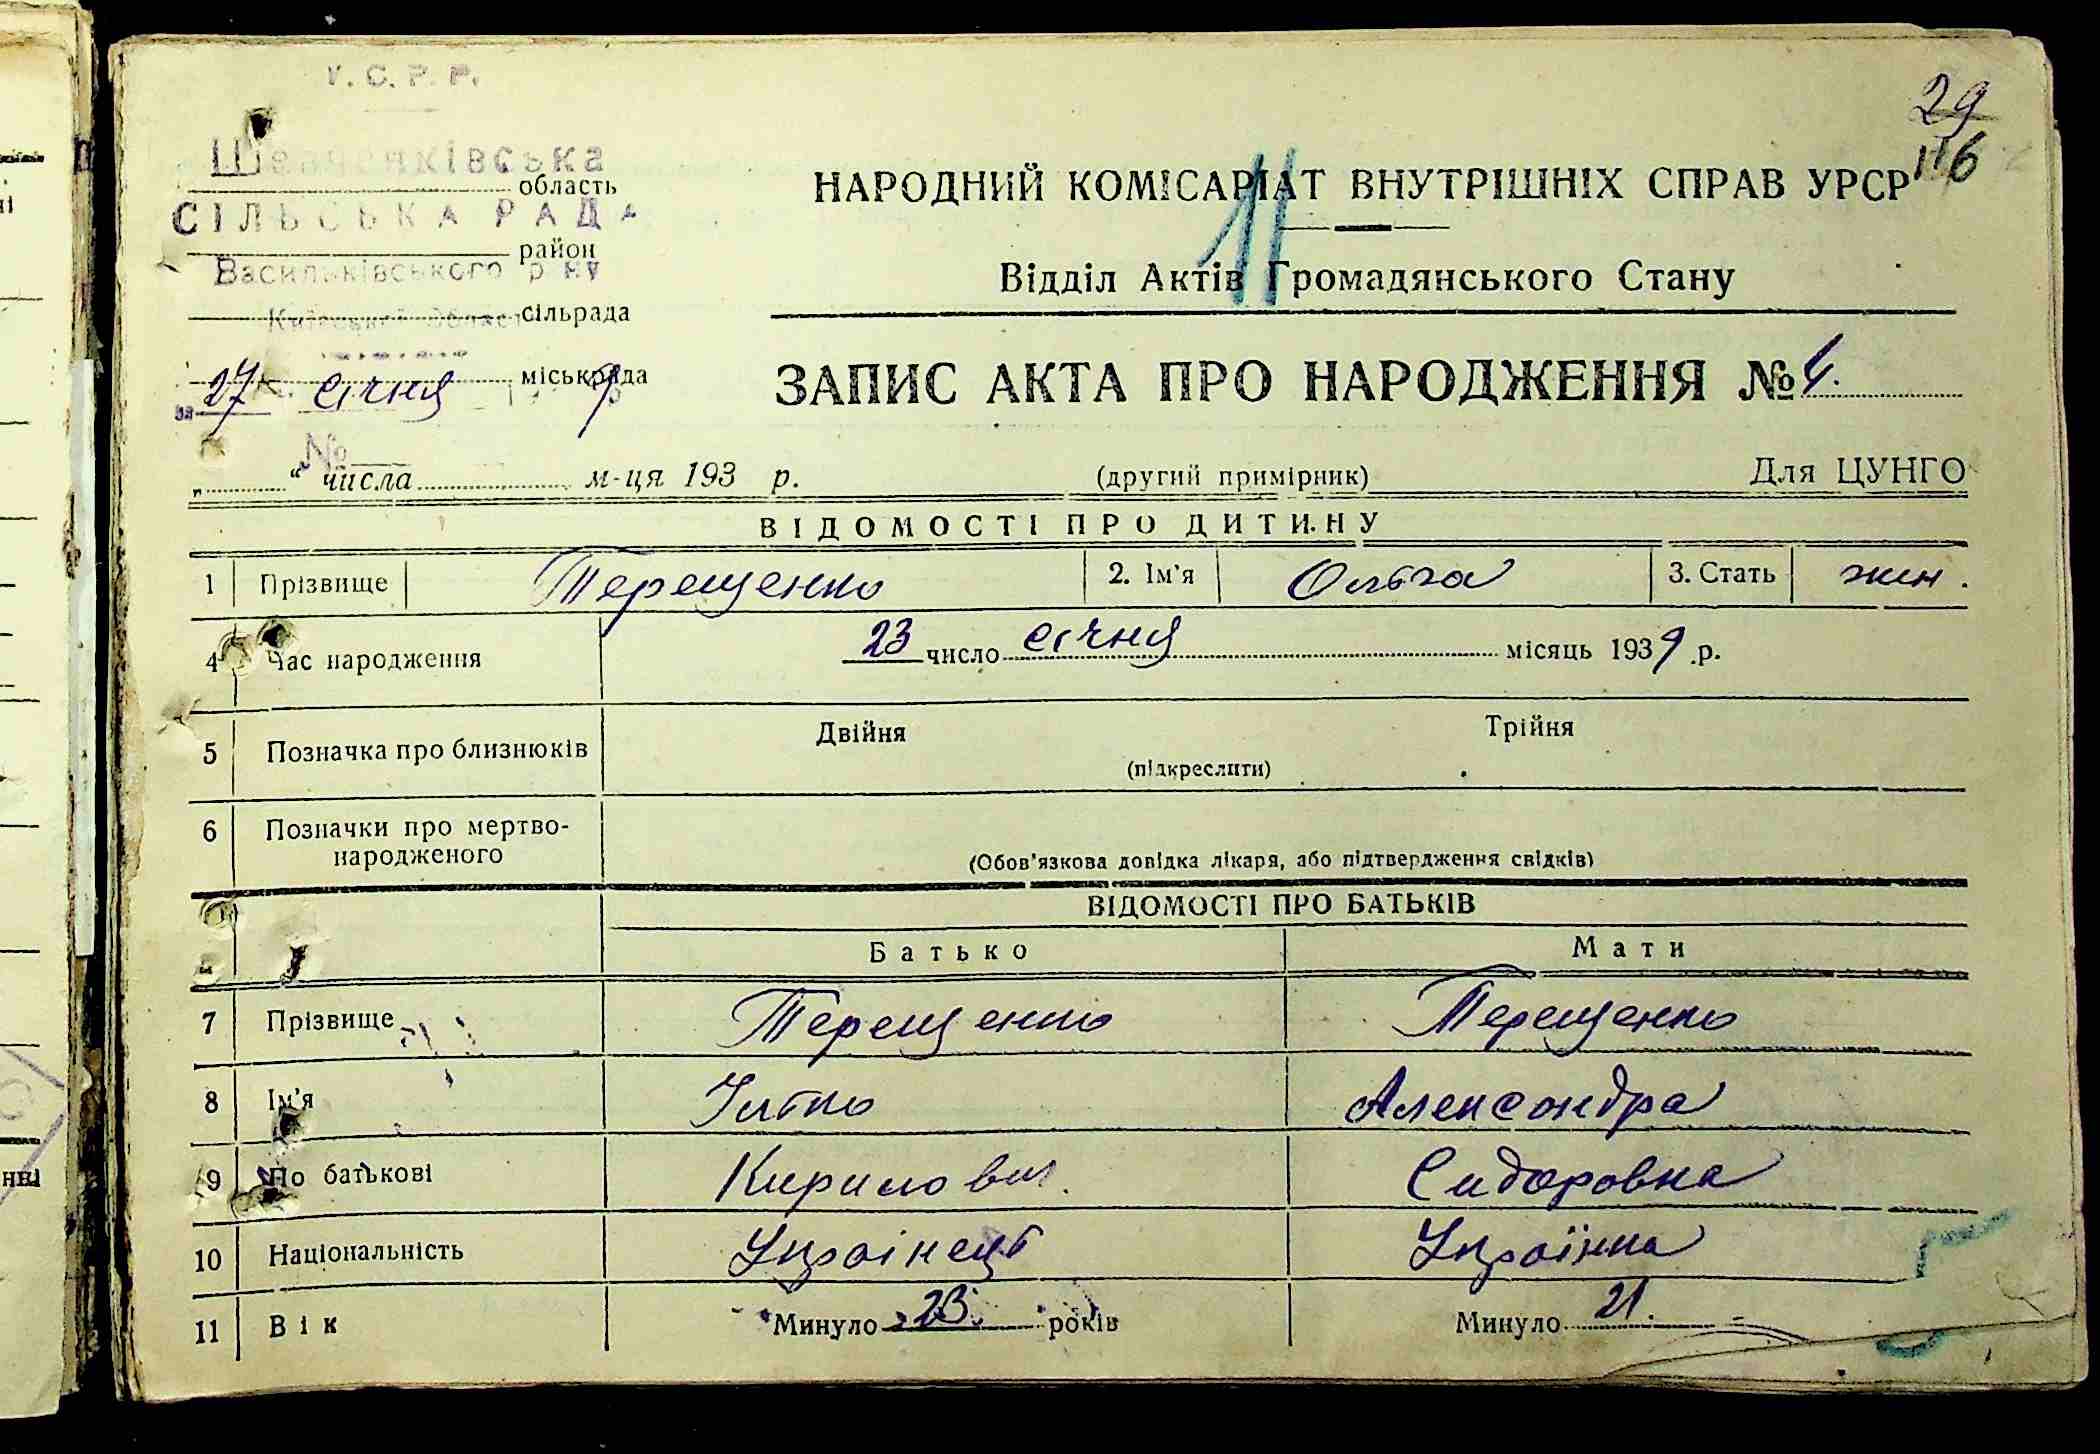 У. С. Р. Р.
29
116
Шевченківська
область
СІЛЬСЬКА РАДА
район
Васильківського р ну
Київської області
сільрада
міськрада
27 січня
НАРОДНИЙ КОМІСАРІАТ ВНУТРІШНІХ СПРАВ УРСР
11
Відділ Актів Громадянського Стану
ЗАПИС АКТА ПРО НАРОДЖЕННЯ № 4.
№
„ “ числа м-ця 193 р.
(другий примірник)
Для ЦУНГО
ВІДОМОСТІ ПРО ДИТИНУ
1 Прізвище Терещенко 2. Ім'я Ольга 3. Стать жін.
4 Час народження 23 число січня місяць 1939 р.
5 Позначка про близнюків Двійня Трійня
(підкреслити)
6 Позначки про мертво-
народженого
(Обов'язкова довідка лікаря, або підтвердження свідків)
ВІДОМОСТІ ПРО БАТЬКІВ
Батько Мати
7 Прізвище Терещенко Терещенко
8 Ім'я Ілько Александра
9 По батькові Кирилович Сидоровна
10 Національність Українець Українка
11 Вік Минуло 23. років Минуло 21.